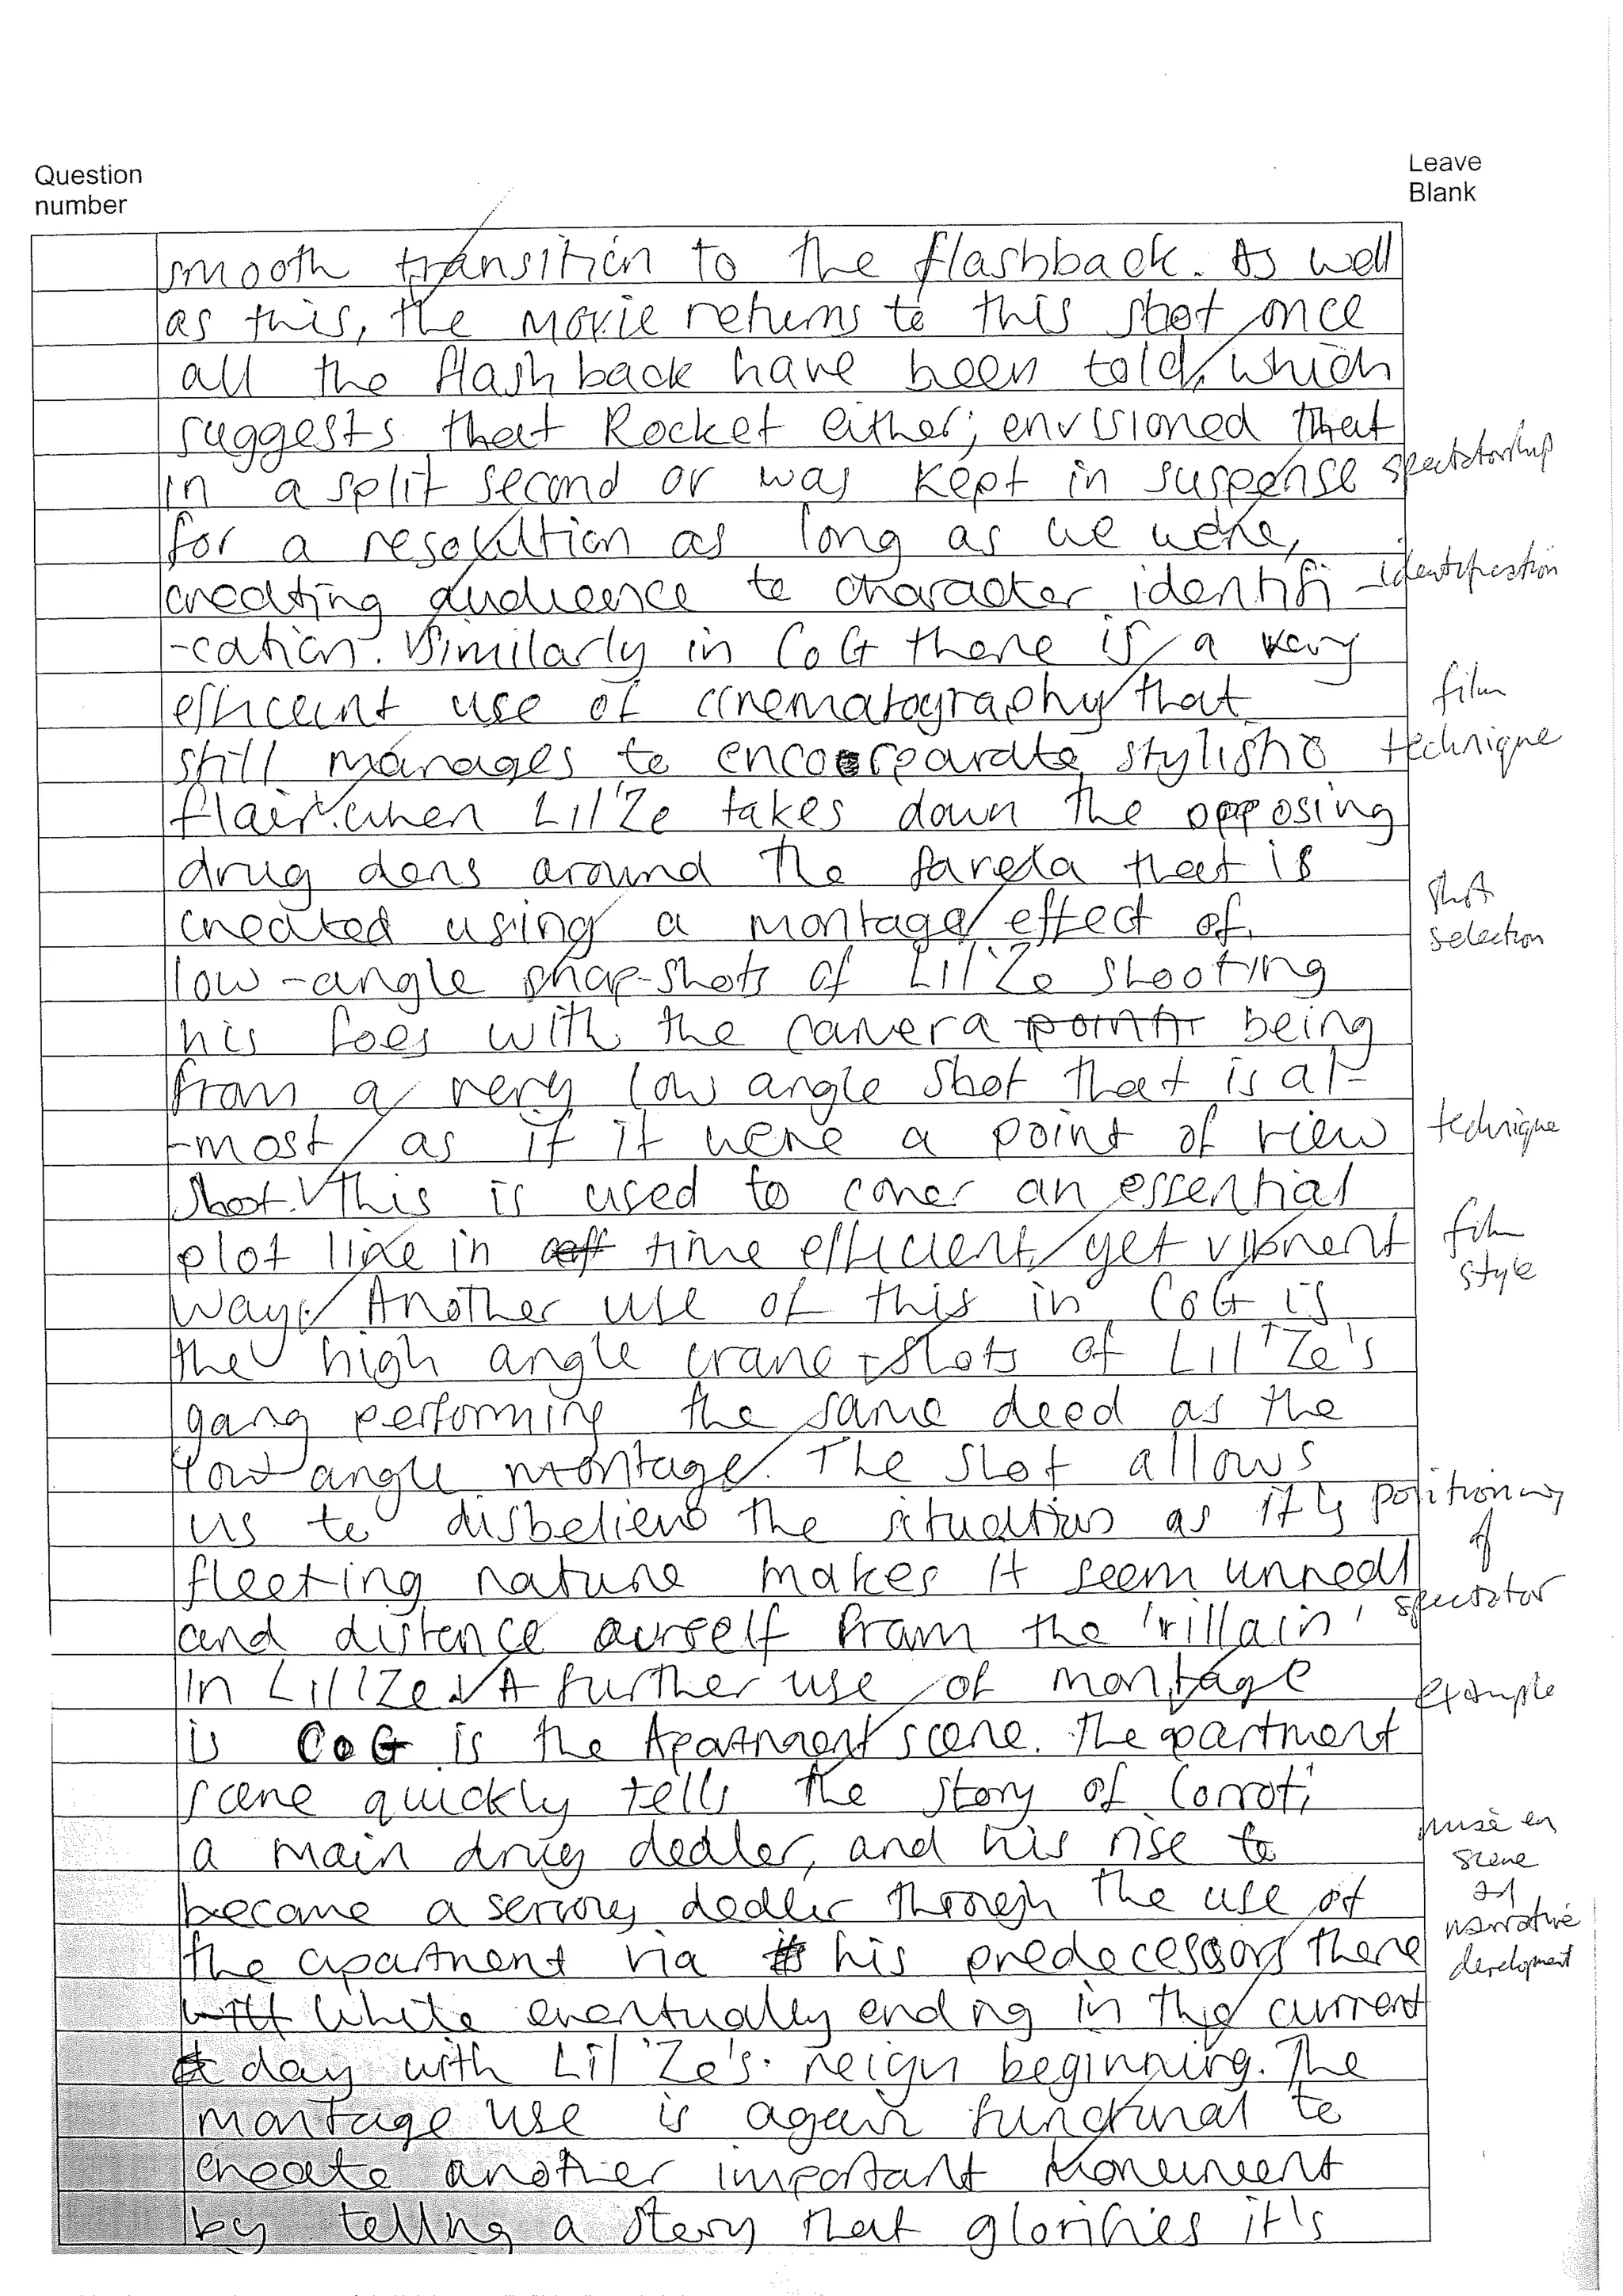 Question
number
Leave
Blank
smooth transition to the flashback. As well
as this, the movie returns to this shot once
all the flashback have been told, which
suggests that Rocket either; envisioned that
in a split second or was kept in suspense
spectatorship
for a resolultion as long as we were,
creating audience to character identifi
identification
-cation. Similarly in CoG there is a very
efficeint use of cinematography that
film
still manages to encorparate stylish
technique
flair when Lil'Ze takes down the opposing
drug dens around the favela that is
created using a montage effect of
shot
selection
low-angle snap-shots of Lil'Ze shooting
his foes with the camera being
from a very low angle shot that is al-
-most as if it were a point of view
technique
shot. This is used to cover an essential
plot line in time efficient yet vibrent
film
style
way. Another use of this in CoG is
the high angle crane-shots of Lil'Ze's
gang performing the same deed as the
low angle montage. The shot allows
us to disbelieve the situation as it's
positioning
of
fleeting nature makes it seem unreal
spectator
and distance ourself from the 'villain'
in Lil'Ze. A further use of montage
example
is CoG is the Apartment scene. The apartment
scene quickly tells the story of Carrot;
a main drug dealer, and his rise to
mise en
scene
and
narrative
development
become a serious dealer through the use of
the apartment via his predecessors there
while eventually ending in the current
day with Lil'Ze's reign beginning. The
montage use is again functional to
create another important monument
by telling a story that glorifies it's